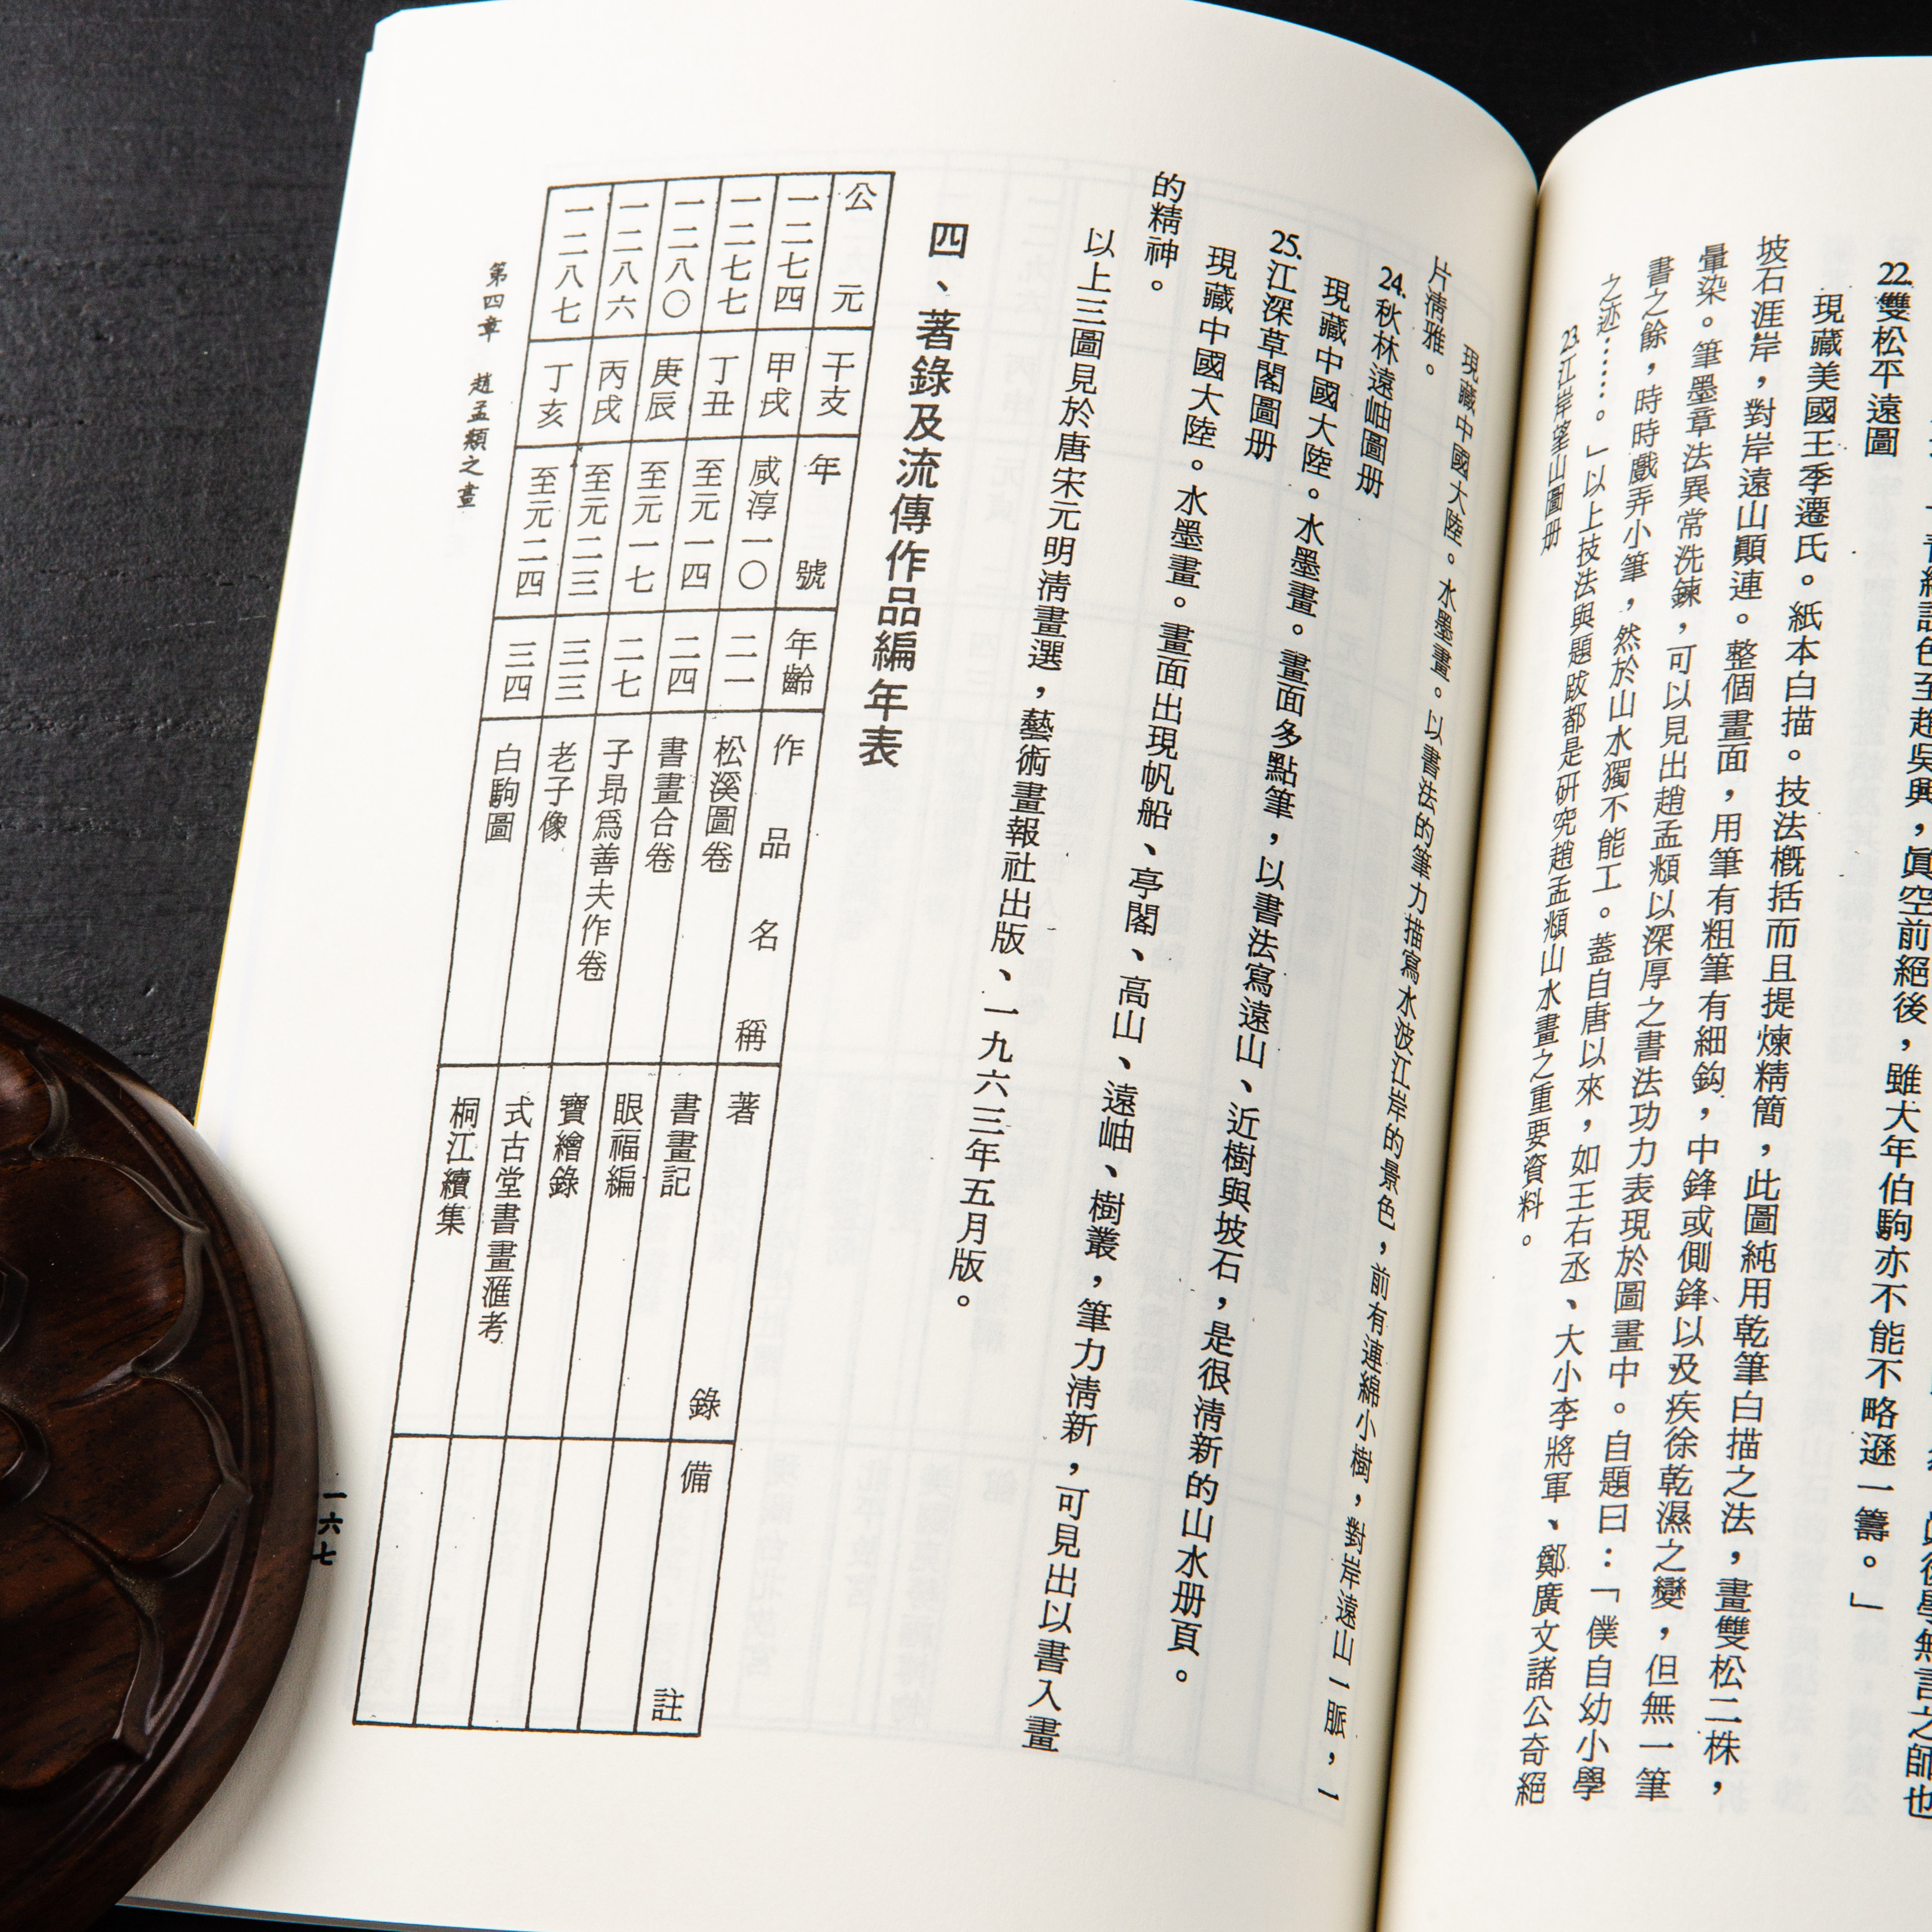 設色至趙吳興，眞空前絕後，雖大年伯駒亦不能不略遜一籌。」
22.雙松平遠圖
現藏美國王季遷氏。紙本白描。技法概括而且提煉精簡，此圖純用乾筆白描之法，畫雙松二株，
坡石涯岸，對岸遠山顚連。整個畫面，用筆有粗筆有細鈎，中鋒或側鋒以及疾徐乾濕之變，但無一筆
暈染。筆墨章法異常洗鍊，可以見出趙孟頫以深厚之書法功力表現於圖畫中。自題曰：「僕自幼小學
書之餘，時時戲弄小筆，然於山水獨不能工。蓋自唐以來，如王右丞、大小李將軍、鄭廣文諸公奇絕
之迹……。」以上技法與題跋都是研究趙孟頫山水畫之重要資料。
23.江岸望山圖册
現藏中國大陸。水墨畫。以書法的筆力描寫水波江岸的景色，前有連綿小樹，對岸遠山一脈，一
片淸雅。
24.秋林遠岫圖册
現藏中國大陸。水墨畫。畫面多點筆，以書法寫遠山、近樹與坡石，是很淸新的山水册頁。
25.江深草閣圖册
現藏中國大陸。水墨畫。畫面出現帆船、亭閣、高山、遠岫、樹叢，筆力淸新，可見出以書入畫
的精神。
以上三圖見於唐宋元明淸畫選，藝術畫報社出版、一九六三年五月版。
四、著錄及流傳作品編年表
公元 干支 年號 年齡 作品名稱 著錄 備註
一二七四 甲戌 咸淳一〇 二一 松溪圖卷 書畫記
一二七七 丁丑 至元一四 二四 書畫合卷 眼福編
一二八〇 庚辰 至元一七 二七 子昻爲善夫作卷 寶繪錄
一二八六 丙戌 至元二三 三三 老子像 式古堂書畫滙考
一二八七 丁亥 至元二四 三四 白駒圖 桐江續集
第四章 趙孟頫之畫
一六七